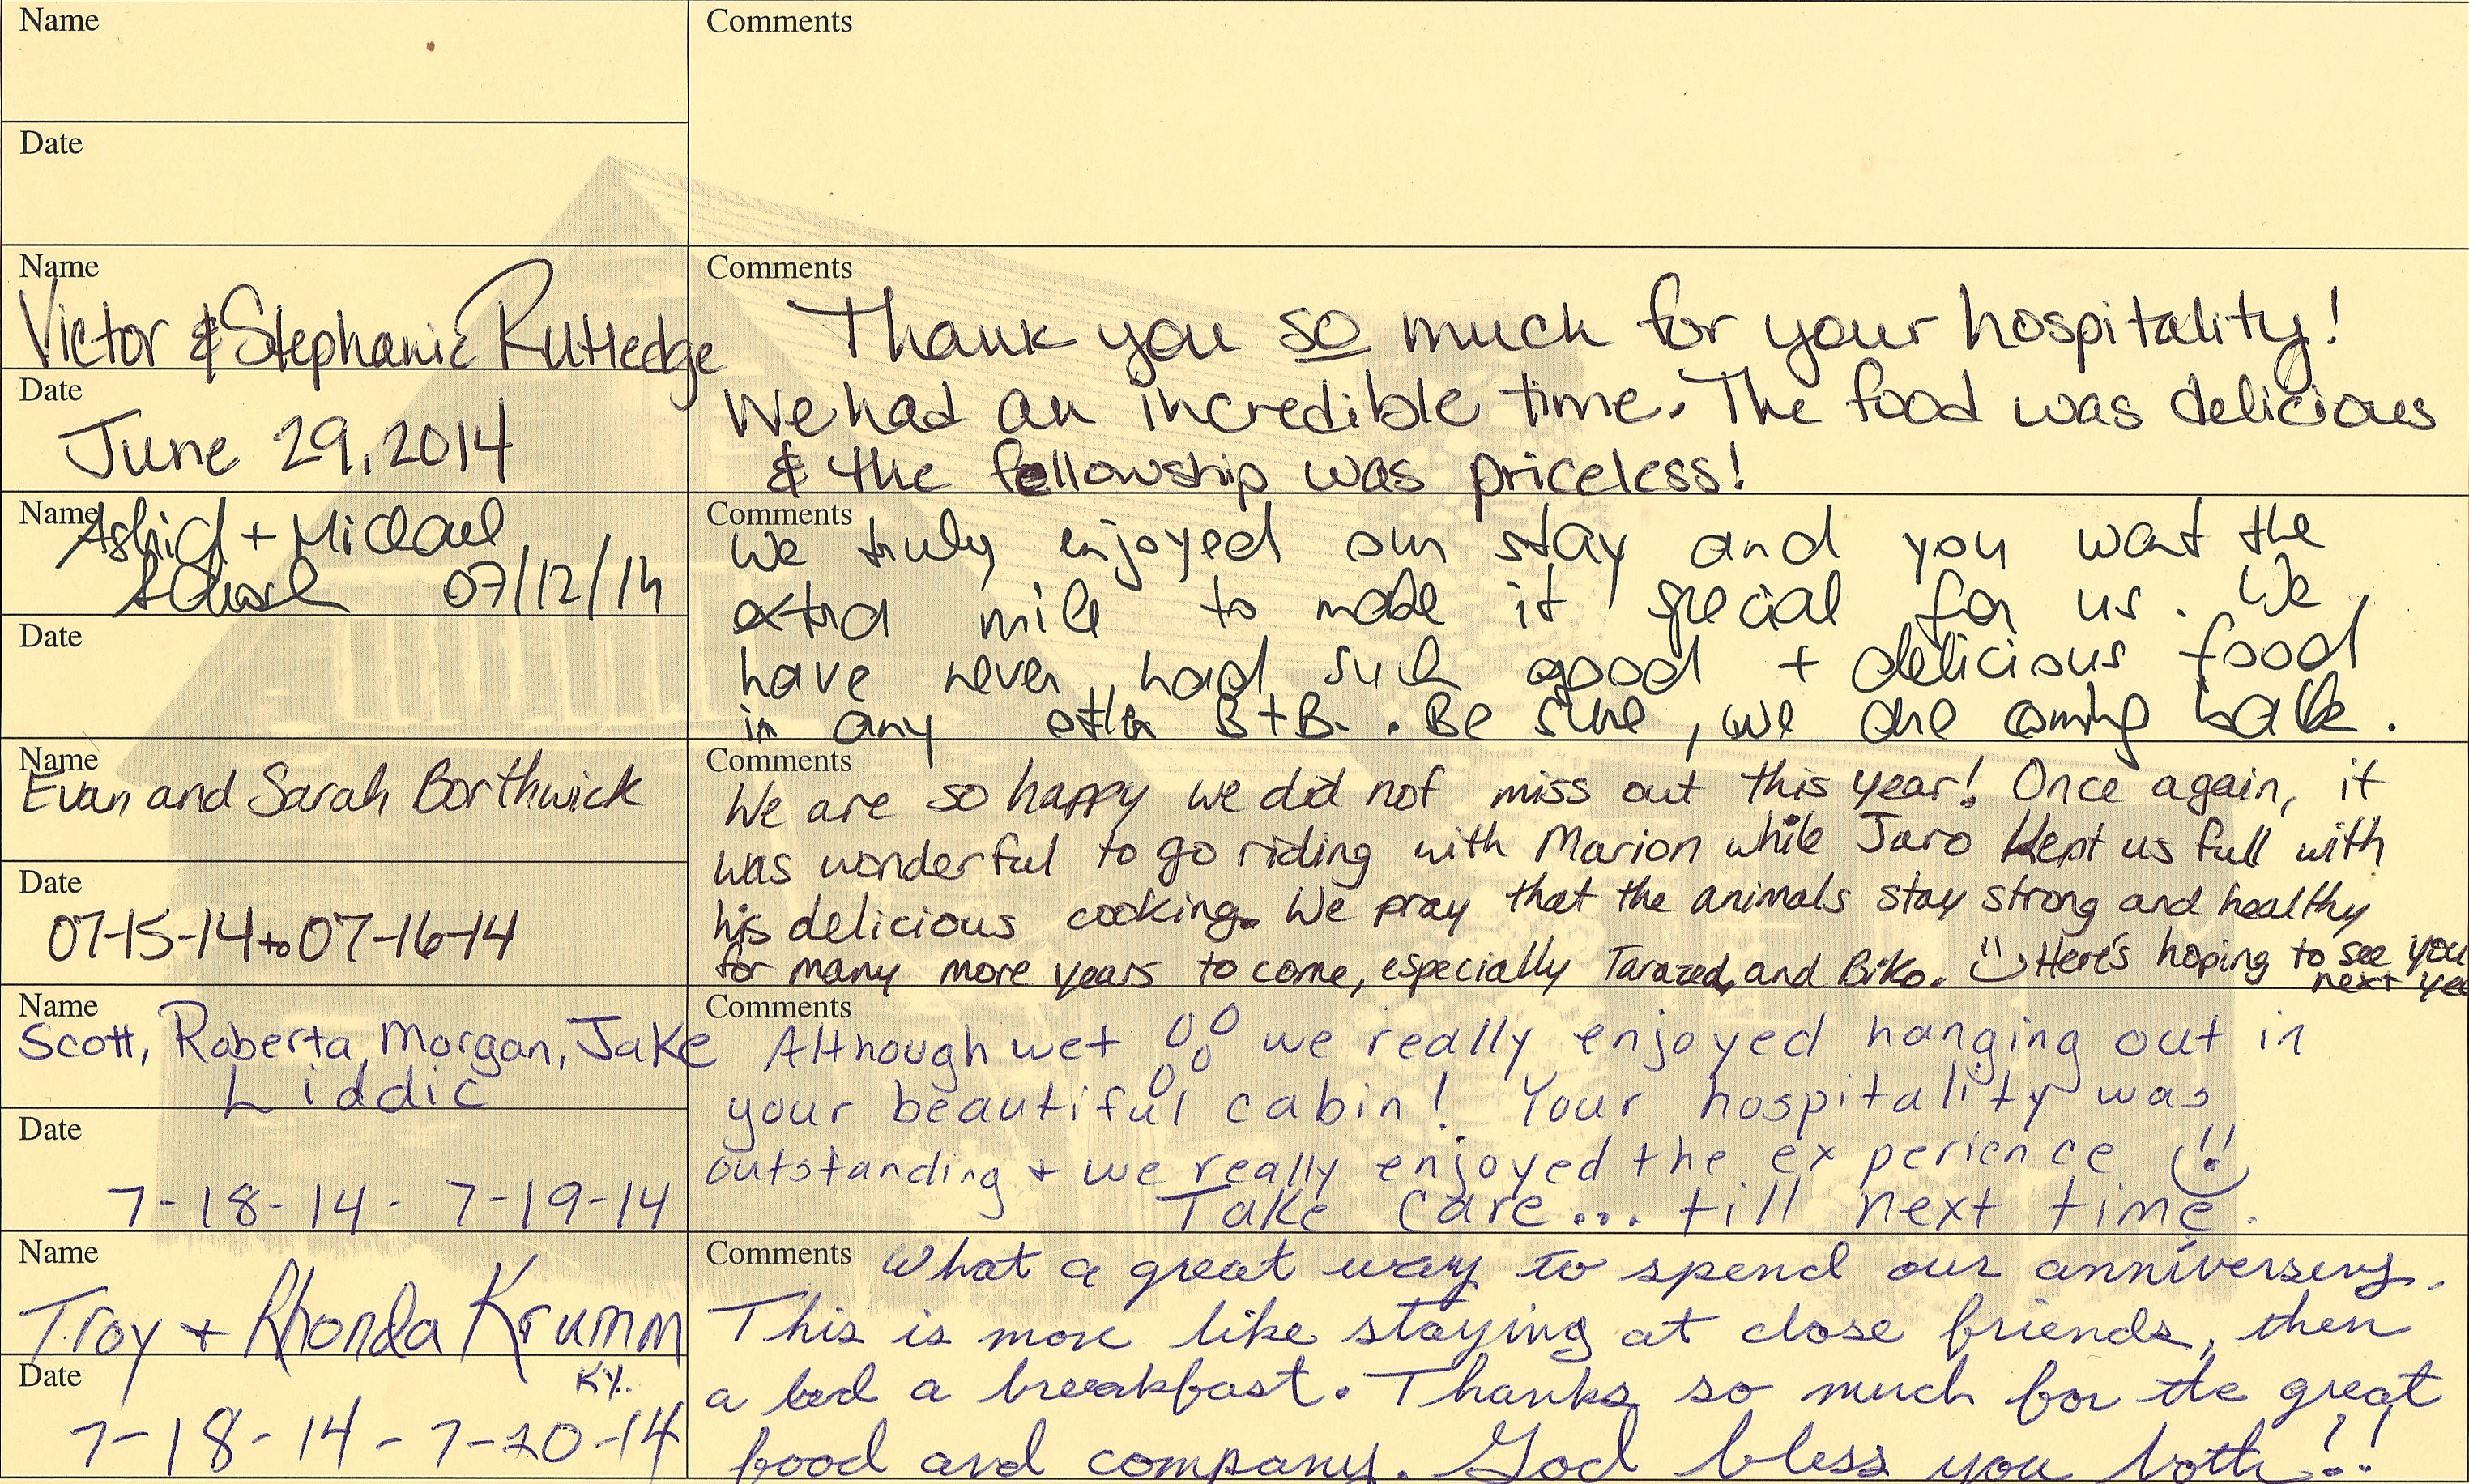 Name
Comments
Date
Name
Victor & Stephanie Rutledge
Date
June 29, 2014
Comments
Thank you so much for your hospitality!
We had an incredible time. The food was delicious
& the fellowship was priceless!
Name
Astrid + Michael
07/12/14
Date
Comments
We truly enjoyed our stay and you want the
extra mile to made it special for us. We
have never had such good + delicious food
in any other B+B. . Be sure, we are coming back.
Name
Evan and Sarah Borthwick
Date
07-15-14 to 07-16-14
Comments
We are so happy we did not miss out this year! Once again, it
was wonderful to go riding with Marion while Jaro kept us full with
his delicious cooking. We pray that the animals stay strong and healthy
for many more years to come, especially Tarazed, and Biko. Here's hoping to see you
next yea
Name
Scott, Roberta, Morgan, Jake
Liddic
Date
7-18-14 - 7-19-14
Comments
Although wet we really enjoyed hanging out in
your beautiful cabin! Your hospitality was
outstanding + we really enjoyed the experience
Take care... till next time.
Name
Troy + Rhonda Krumm
Ky.
Date
7-18-14 - 7-20-14
Comments
What a great way to spend our anniversery.
This is more like staying at close friends, then
a bed a breakfast. Thanks so much for the great
food and company. God bless you both!!